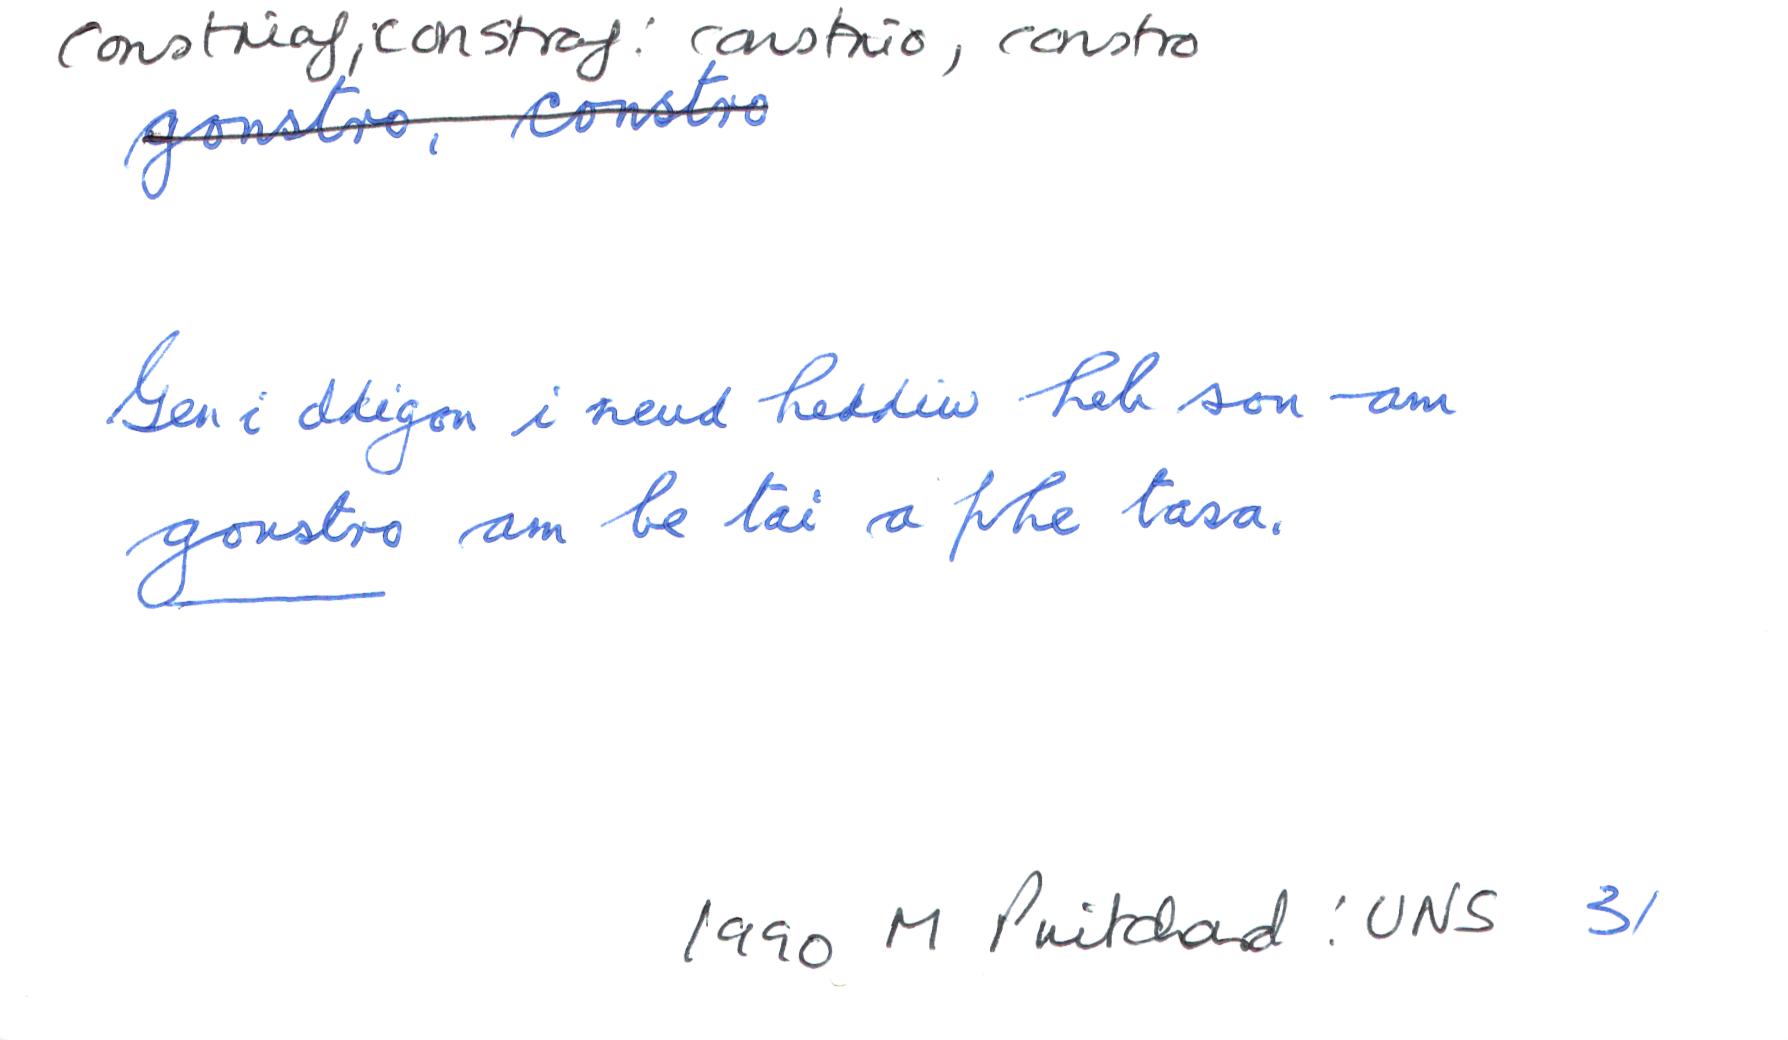 constriaf, constraf: constrio, constro
gonstro, constro
Gen i ddigon i neud heddiw heb son am
gonstro am be tai a phe tasa.
1990 M Pritchard : UNS 31